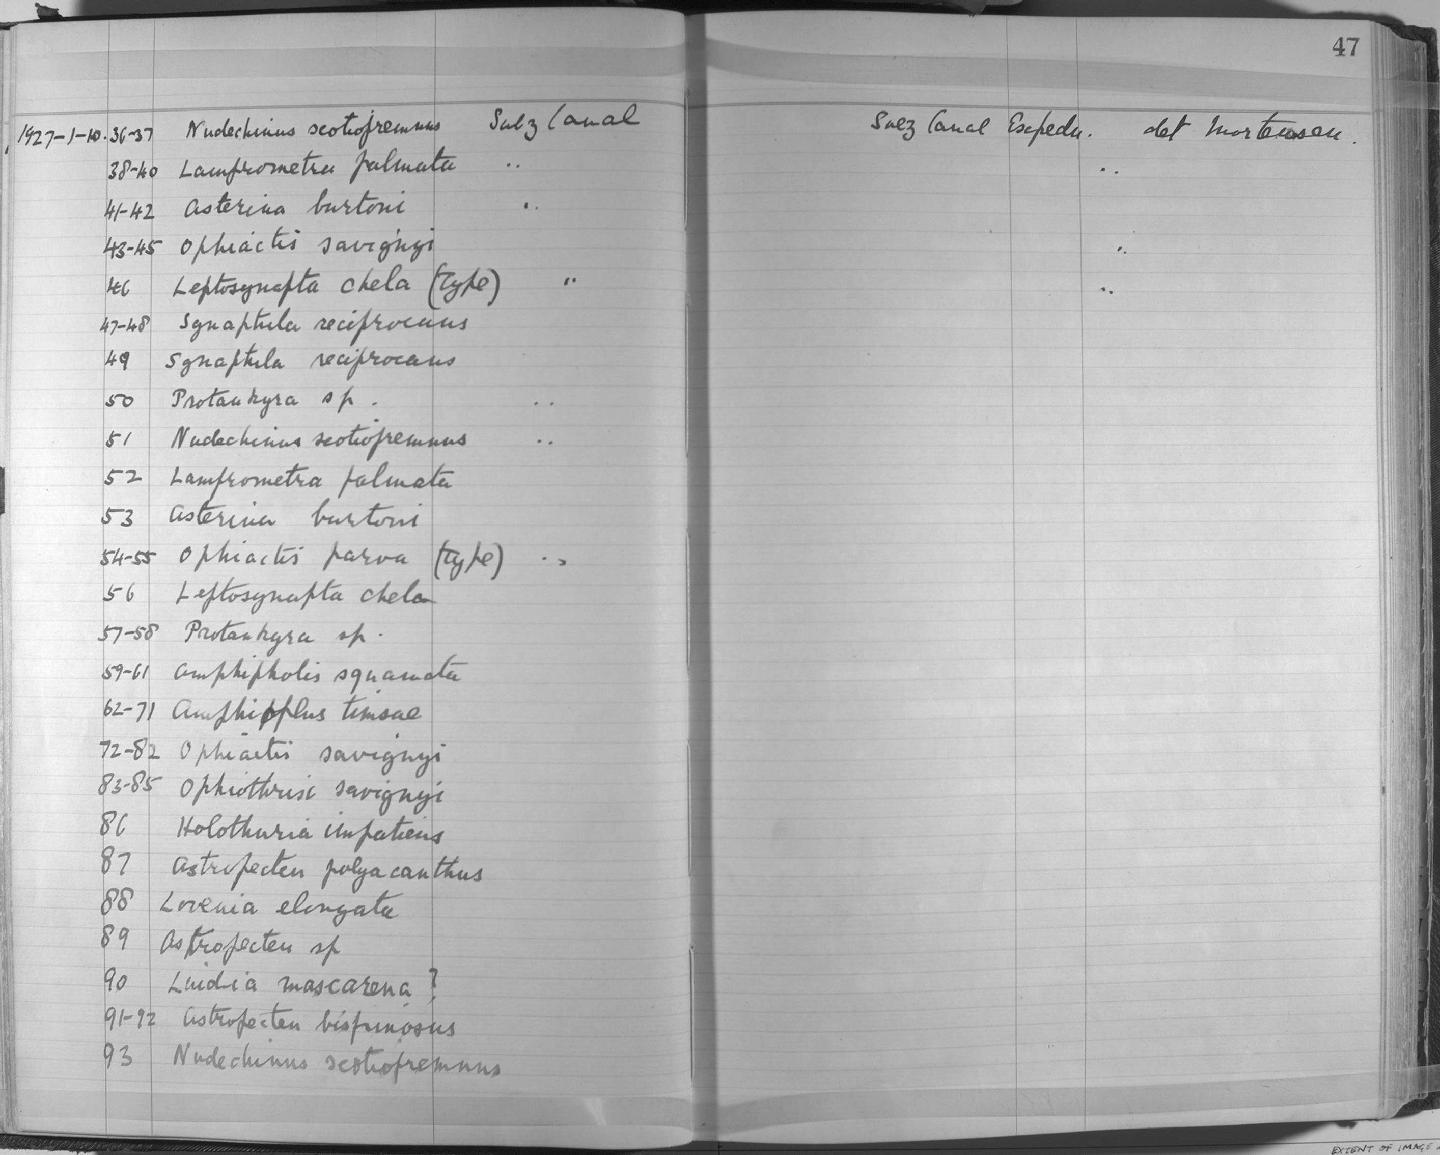 47
1927-1-10. 36-37 Nudechinus scotiopremnus Suez Canal Suez Canal Expedn. det Mortensen.
38-40 Lamprometra palmata " "
41-42 Asterina burtoni "
43-45 Ophiactis savignyi "
46 Leptosynapta chela (Type) " "
47-48 Synaptula reciprocans
49 Synaptula reciprocans
50 Protankyra sp. "
51 Nudechinus scotiopremnus "
52 Lamprometra palmata
53 Asterina burtoni
54-55 Ophiactis parva (Type) "
56 Leptosynapta chela
57-58 Protankyra sp.
59-61 Amphipholis squamata
62-71 Amphioplus timsae
72-82 Ophiactis savignyi
83-85 Ophiothrix savignyi
86 Holothuria impatiens
87 Astropecten polyacanthus
88 Lovenia elongata
89 Astropecten sp
90 Luidia mascarena ?
91-92 Astropecten bispinosus
93 Nudechinus scotiopremnus
EXTENT OF IMAGE